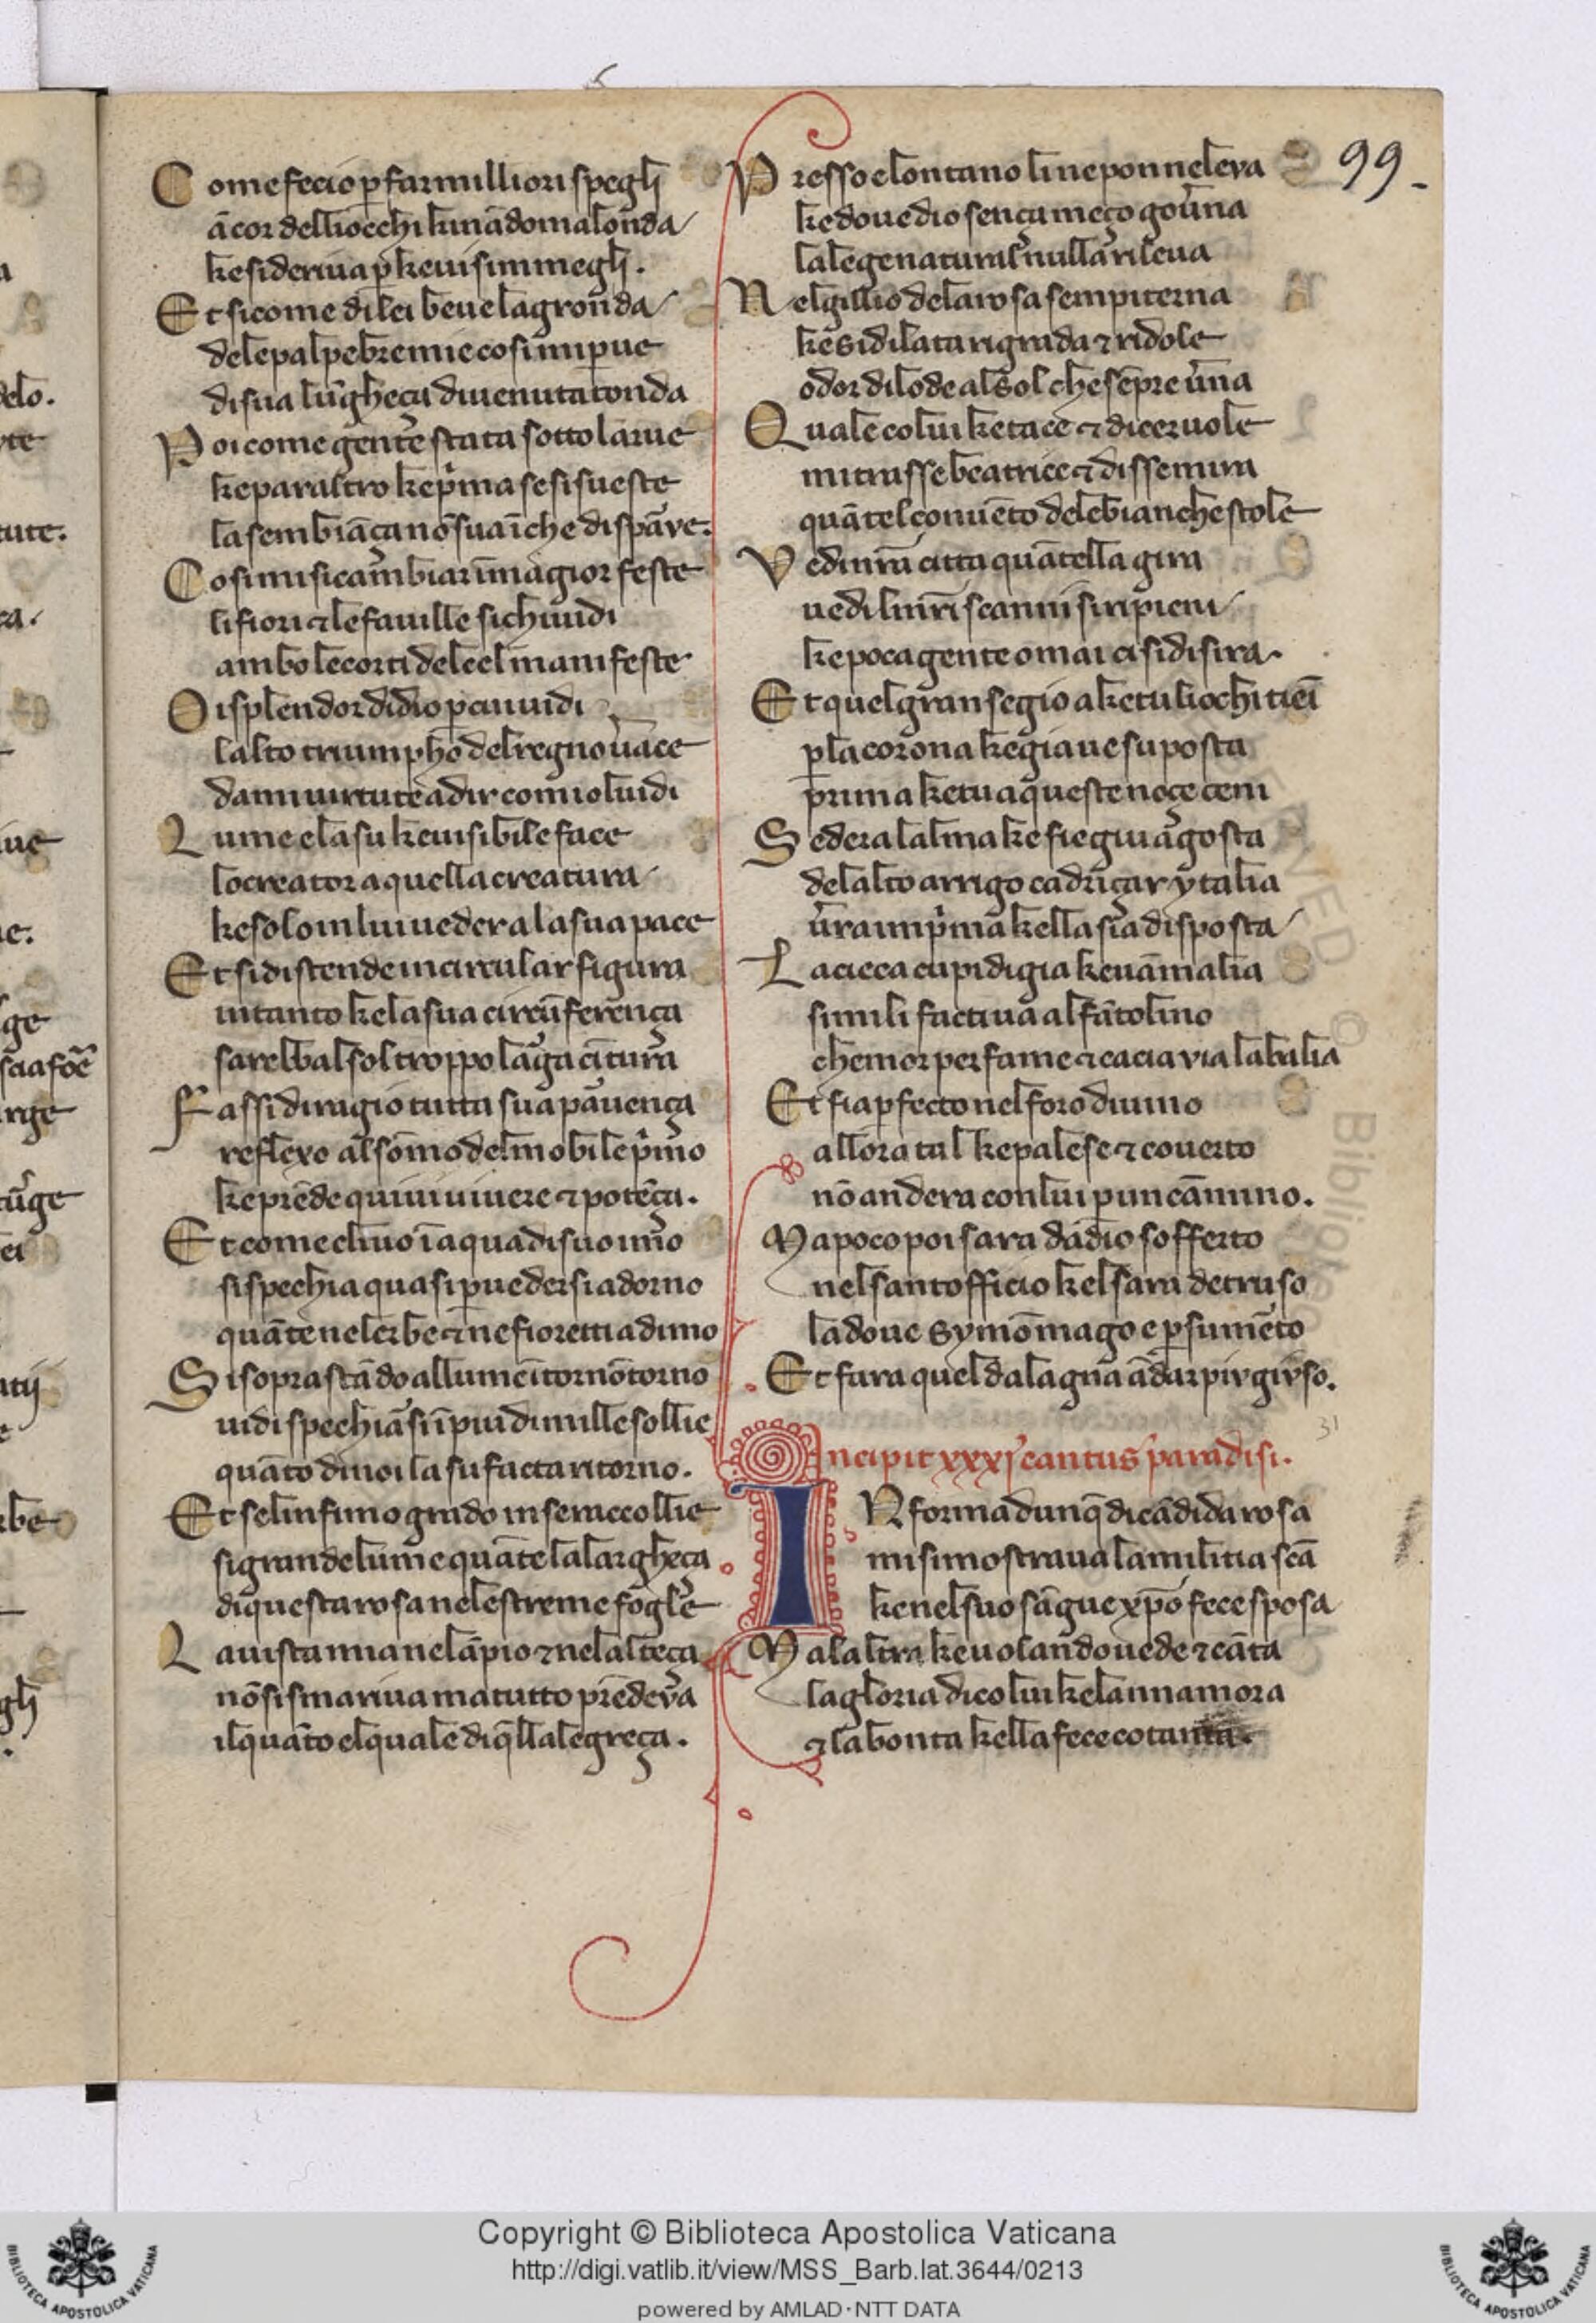 Come fecio ꝑ far milliori spegli
ācor delliocchi kinādo ma londa
ke si deriua ꝑ ke ui sinmegli.
Et si come di lei beue la gronda
de le palpebre mie cosi mi ꝑue
di sua lūgheça diuenuta tonda
Poi come gente stata sotto larue
ke par altro ke pͥma se si sueste
la sembiāça nō sua ī che dispāve.
Cosi mi si cambiar ī magior feste
li fiori ⁊ le fauille sichi uidi
ambo le corti de lcel manifeste
O isplendor di dio ꝑ cui uidi
lalto triumpho del regno uͣace
dammi uirtute a dir comio lui di
Lume e la su ke uisibile face
lo creator a quella creatura
ke solo in lui uedera la sua pace
Et si distende in circular figura
in tanto ke la sua circūferença
sarebbal sol troppo larga cītura
Fassi di ragio tutta sua paruença
reflexo al sōmo del mobile pͥmo
ke prēde quiui uiuere ⁊ potēça.
Et come cliuo ī aqua di suo imo
si spechia quasi ꝑ uedersi adorno
quāte ne lerbe ⁊ ne fioretti adimo
Si soprastādo al lume ītorno ītorno
uidi spechiarsi ī piu di mille sollie
quāto di noi la su facta ritorno.
Et se linfimo grado in se raccollie
si grande lume quāte la largheça
di questa rosa ne lestreme foglie
La uista mia ne lāpio ⁊ nel alteça
nō si smariua ma tutto prēdeva
il quāto el quale di qͣlla legreça.
99.
Presso e lontano li ne pon ne leva
ke doue dio sença meço gouͣna
la lege natural nulla rileua
Nel giallio de la rosa sempiterna
ke si dilata rigrada ⁊ ridole
odor di lode al sol che sēpre uͣna
Quale colui ke tace ⁊ dicer uole
mi trasse beatrice ⁊ disse mira
quāte el conuēto de le bianche stole
Vedi nr̄a citta quātella gira
uedi li nr̄i scanni si ripieni
ke poca gente omai ci si disira.
Et quel gran segio a ke tu liochi tieī
ꝑ la corona ke gia ue su posta
prima ke tu a queste noçe ceni
Sedera lalma ke fie giu āgosta
de lalto arrigo ca driçar ytalia
uͣra in pͥma kella sia disposta
La cieca cupidigia ke uāmalia
simili facti ua al fātolino
che mor per fame ⁊ cacia via la balia
Et fia ꝑfecto nel foro diuino
allora tal ke palese ⁊ couerto
nō andera con lui ꝑ un cāmino.
Ma poco poi sara da dio sofferto
nel santo fficio kel sara detruso
la doue symō mago e ꝑ su mēto
Et fara quel dalagna ādar piv givso.
31
Incipit xxxj cantus paradisi.
IN forma dunqͣ di cādida rosa
mi si mostraua la militia scā
ke nel suo sāgue xp̄o fece sposa
Ma laltra ke uolando uede ⁊ cāta
la gloria di colui ke la nnamora
⁊ la bonta kella fece cotanta.
Copyright © Biblioteca Apostolica Vaticana
http://digi.vatlib.it/view/MSS_Barb.lat.3644/0213
powered by AMLAD·NTT DATA